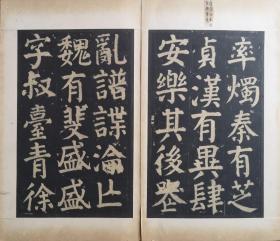 率燭秦有芝
貞漢有異肆
安樂其後丕
亂譜諜淪亡
魏有斐盛盛
字叔臺青徐